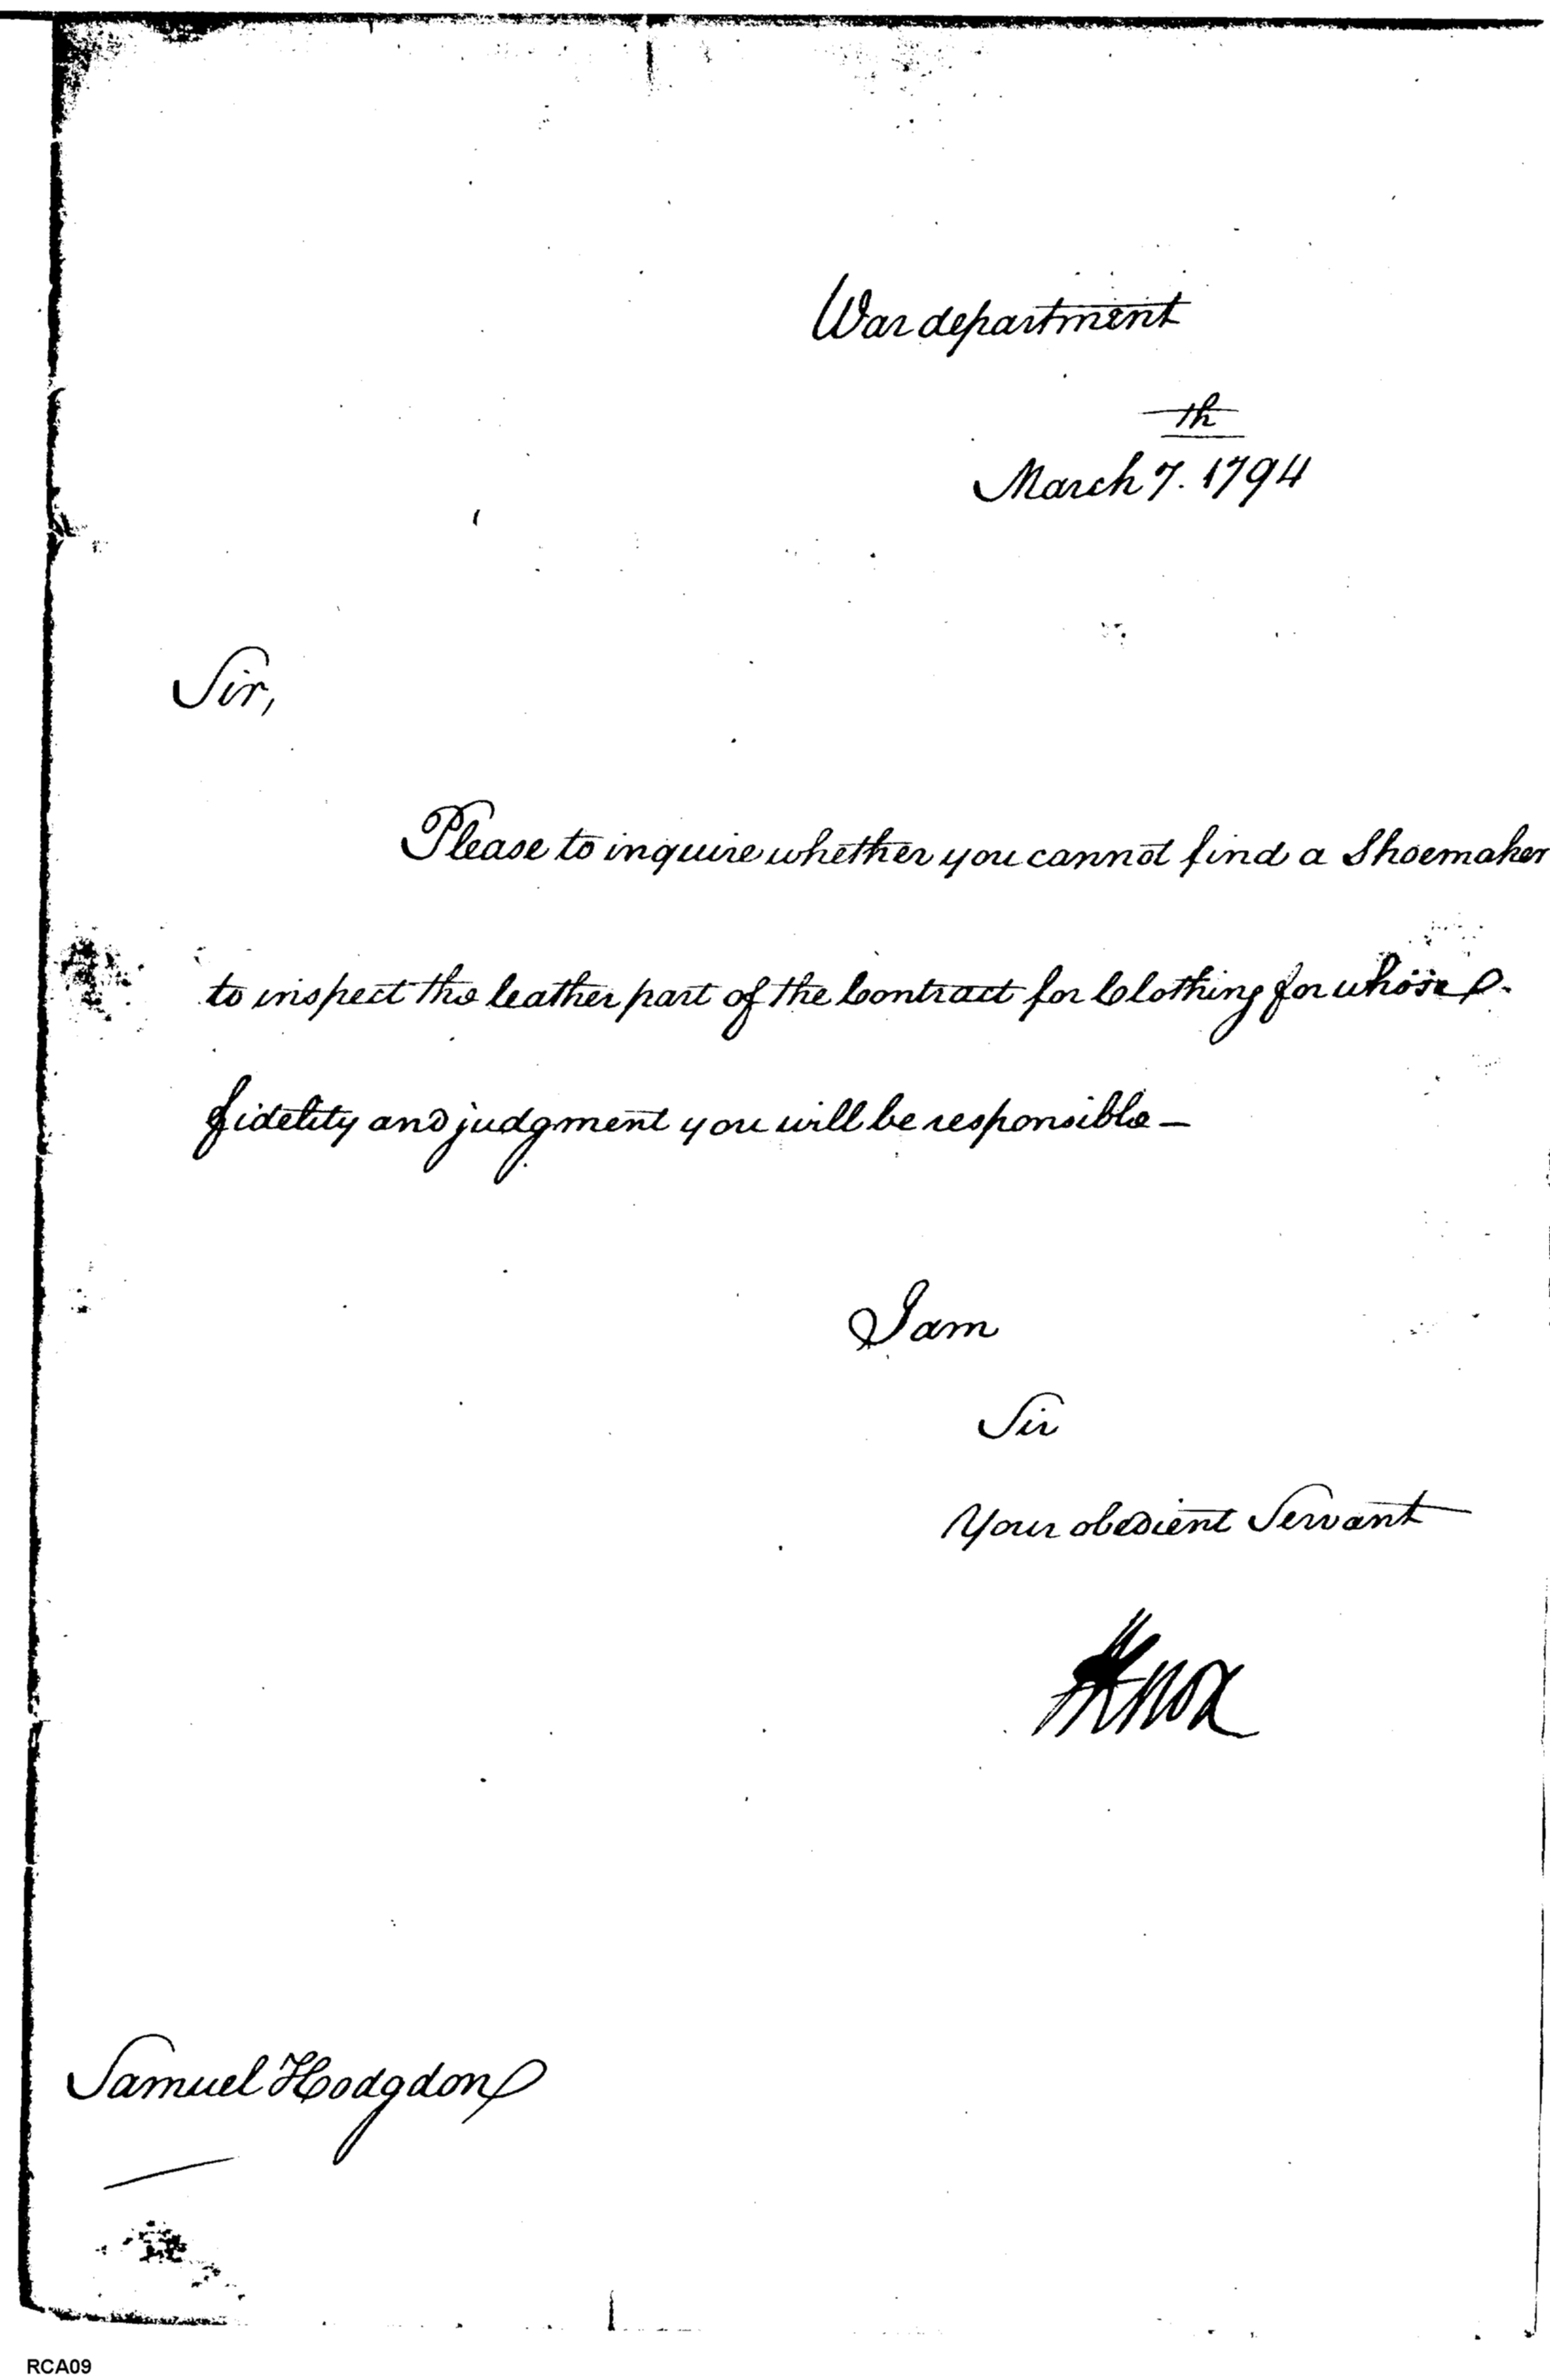 War department
March 7.th 1794
Sir,
Please to inquire whether you cannot find a Shoemaker
to inspect the leather part of the Contract for Clothing for whose
fidelity and judgment you will be responsible —
I am
Sir
Your obedient Servant
HKnox
Samuel Hodgdon
RCA09